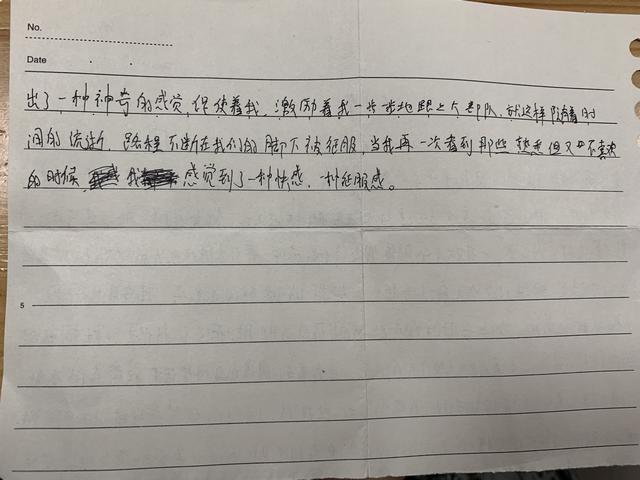 No.
Date
出了一种神奇的感觉,促使着我,激励着我一步步地跟上大部队,就这样随着时
间的流逝,路程不断在我们的脚下被征服,当我再一次看到那些熟悉但又不喜欢
的时候,我感觉到了一种快感,一种征服感。
5